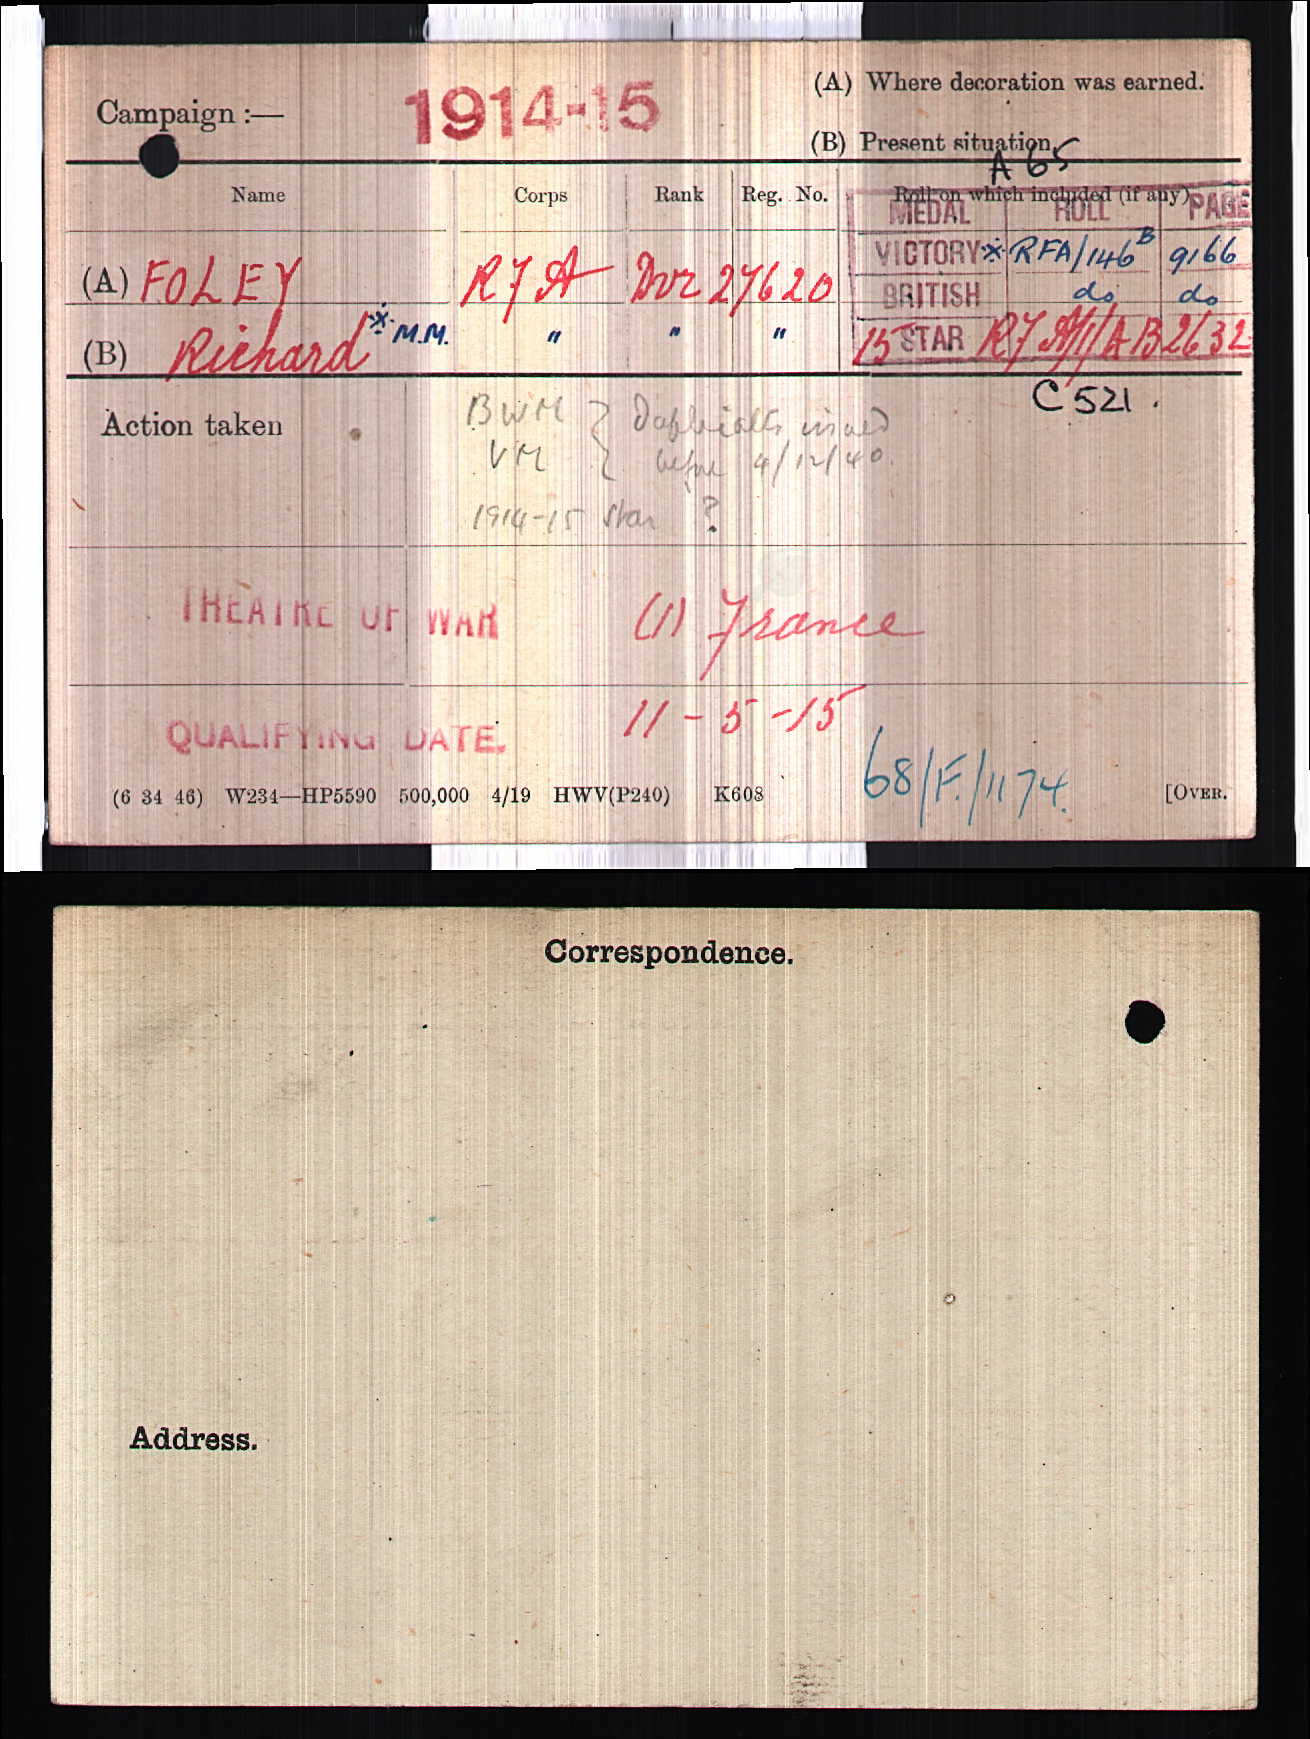 Campaign :— 1914-15
(A) Where decoration was earned.
(B) Present situation.
A 65
Name Corps Rank Reg. No. Roll on which included (if any)
MEDAL ROLL PAGE
(A) FOLEY R F A Dvr 27620
VICTORY * RFA/146 B 9166
BRITISH do do
(B) Richard * M.M. " " "
15 STAR RFA/1/AB 2632
C 521 .
Action taken
BWM } Duplicates issued
VM } before 4/12/40.
1914-15 Star ?
THEATRE OF WAR (1) France
QUALIFYING DATE. 11-5-15
68/F./1174.
(6 34 46) W234—HP5590 500,000 4/19 HWV(P240) K608 [OVER.
Correspondence.
Address.